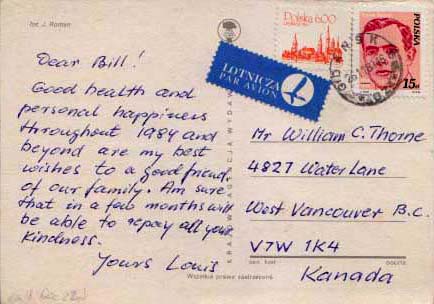 fot. J. Roman
Polska 6.00
POLSKA
15 zł
LOTNICZA
PAR AVION
Dear Bill!
Good health and
personal happiness
throughout 1984 and
beyond are my best
wishes to a good friend
of our family. Am sure
that in a few months will
be able to repay all your
kindness.
Yours Louis
Mr William C. Thorne
4827 Water Lane
West Vancouver B.C.
V7W 1K4
Kanada
KRAJOWA AGENCJA WYDAWNICZA
Wszelkie prawa zastrzeżone